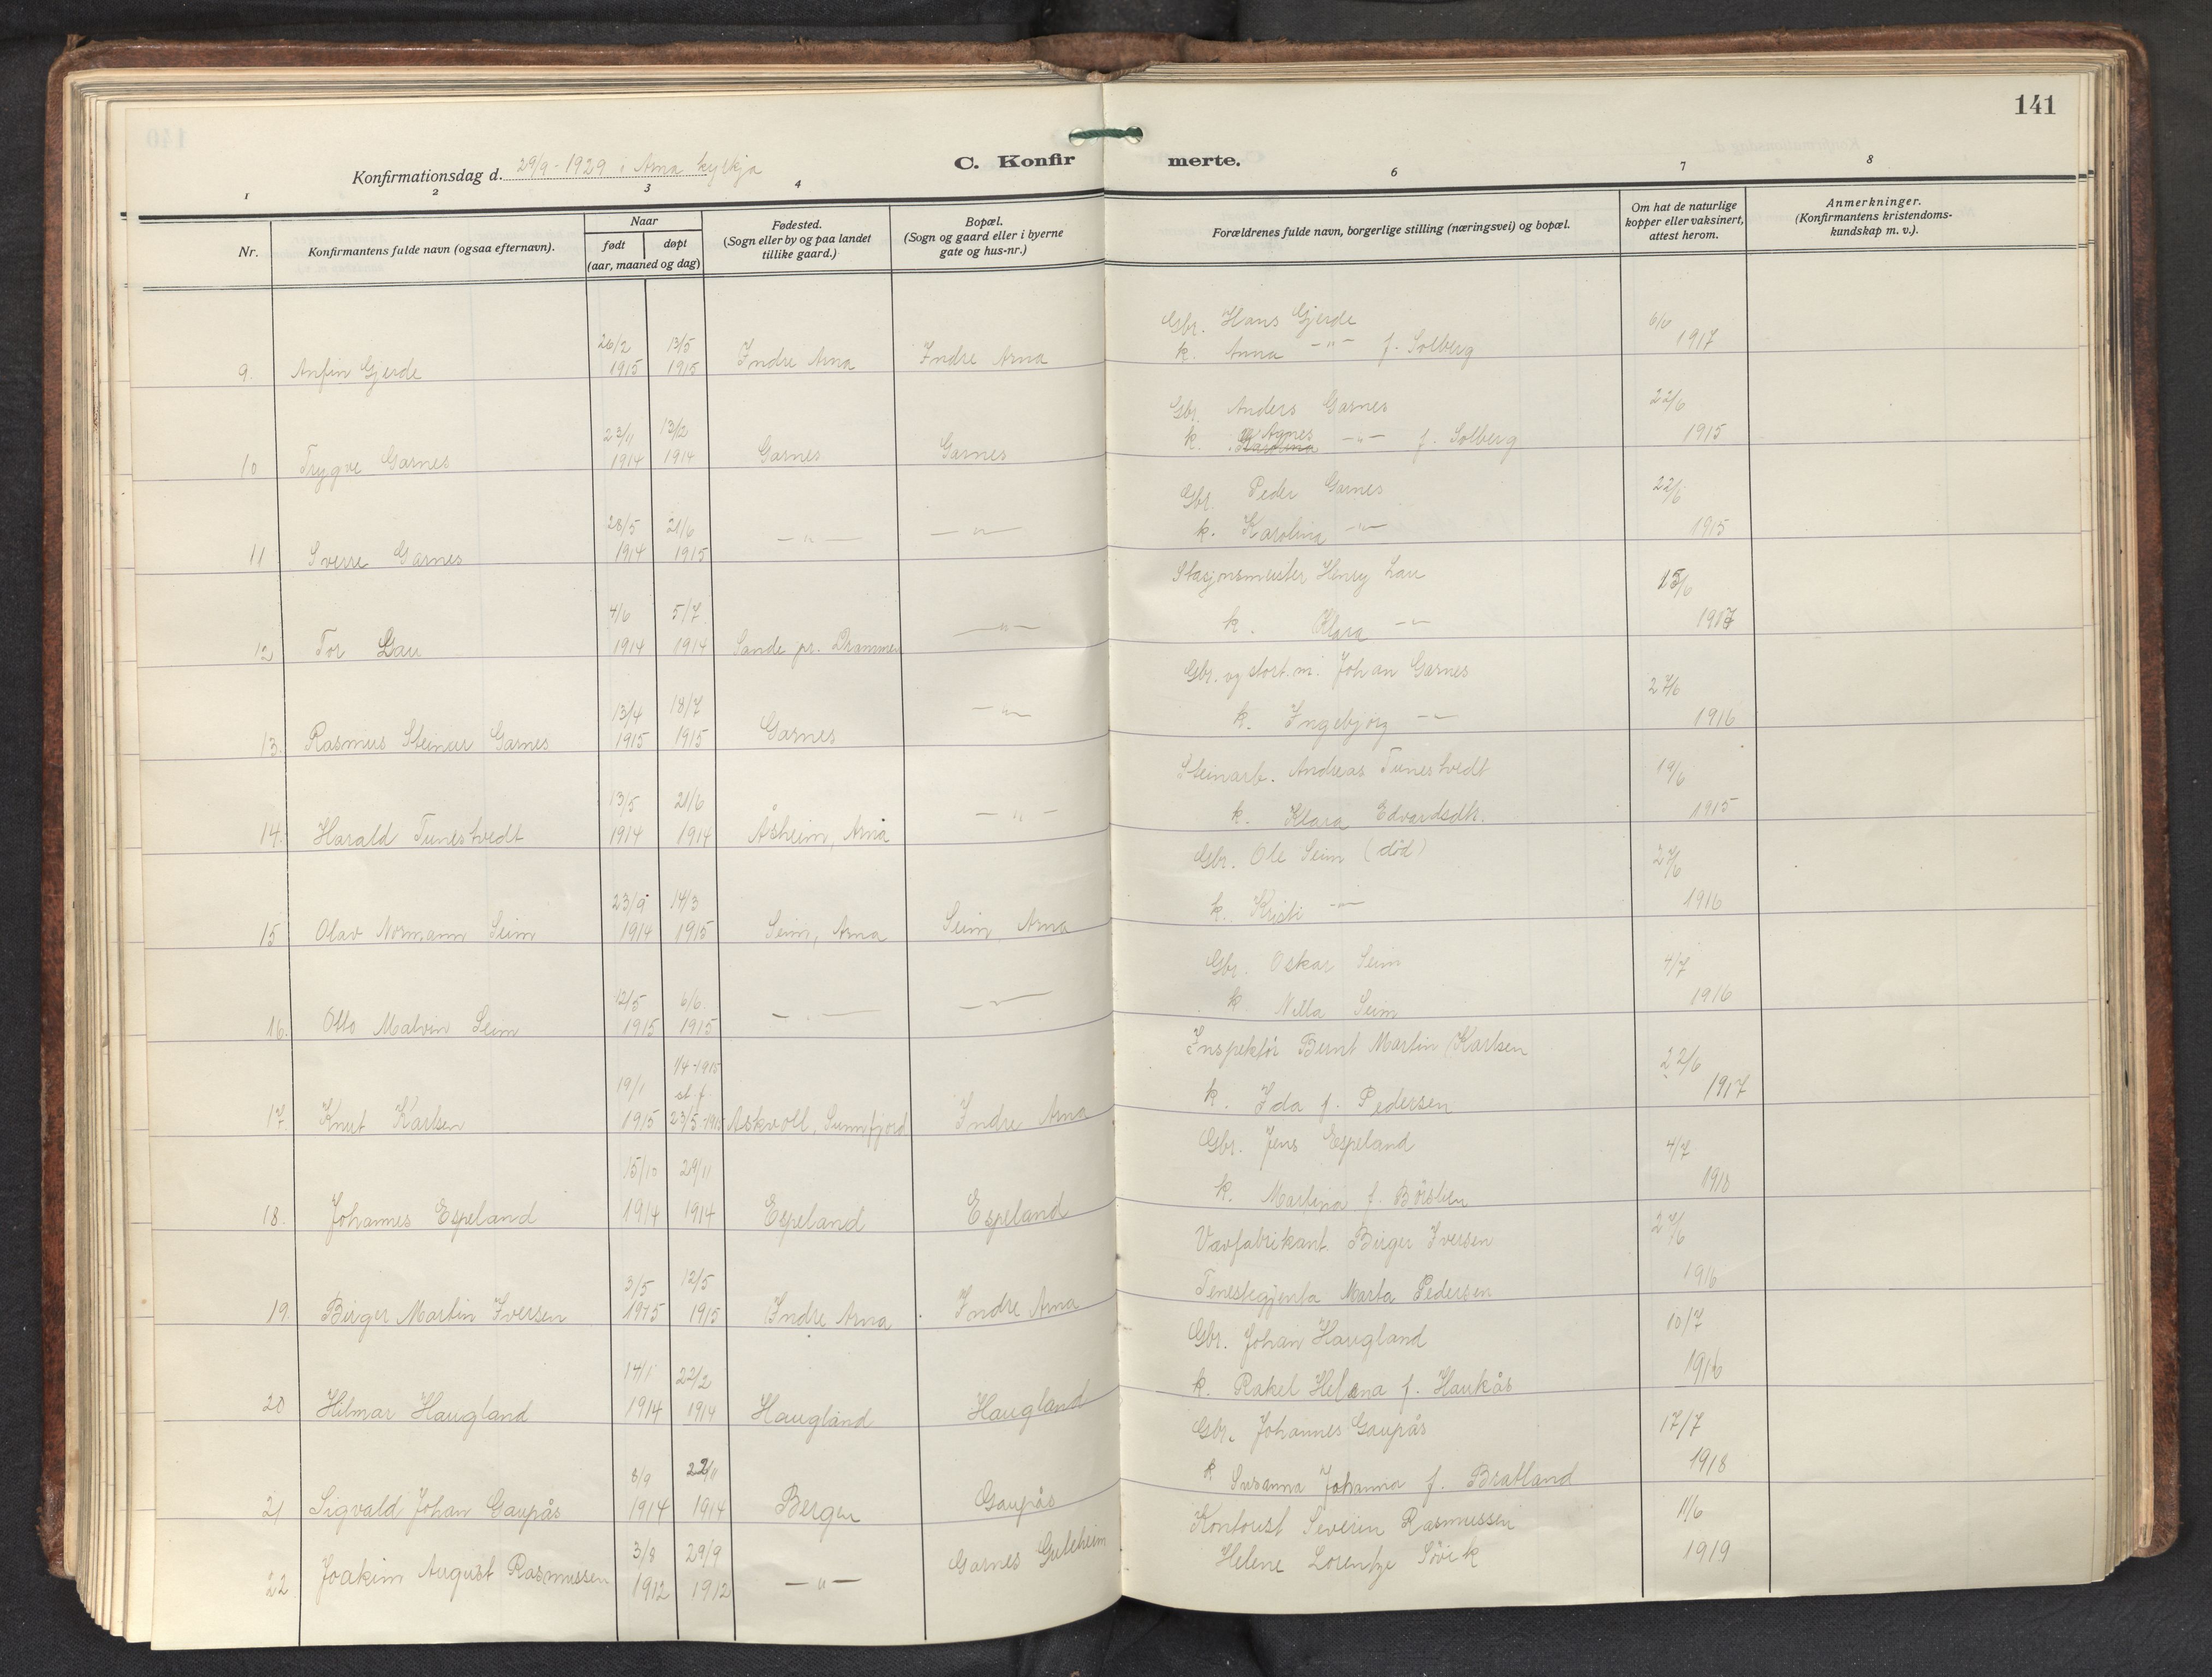 141
Konfirmationsdag d. 29/9 - 1929 i Arna kyrkja
C. Konfirmerte.
1 2 3 4 6 7 8
Nr.
Konfirmantens fulde navn (ogsaa efternavn).
Naar
født
døpt
(aar, maaned og dag)
Fødested.
(Sogn eller by og paa landet
tillike gaard.)
Bopæl.
(Sogn og gaard eller i byerne
gate og hus-nr.)
Forældrenes fulde navn, borgerlige stilling (næringsvei) og bopæl.
Om hat de naturlige
kopper eller vaksinert,
attest herom.
Anmerkninger.
(Konfirmantens kristendoms-
kundskap m. v.).
26/2 13/5 Gbr. Hans Gjerde 6/6
9. Anfin Gjerde 1915 1915 Indre Arna Indre Arna k. Anna -"- f. Solberg 1917
23/11 13/2 Gbr. Anders Garnes 22/6
10 Trygve Garnes 1914 1914 Garnes Garnes k. Agnes Karolina -"- f. Solberg 1915
28/5 21/6 Gbr. Peder Garnes 22/6
11 Sverre Garnes 1914 1915 -"- -"- k. Karolina -"- 1915
4/6 5/7 Stasjonsmeister Henry Lau 15/6
12 Tor Lau 1914 1914 Sande pr. Drammen -"- k. Klara -"- 1917
13/4 18/7 Gbr. og stort.m. Johan Garnes 27/6
13. Rasmus Steinar Garnes 1915 1915 Garnes -"- k. Ingebjørg -"- 1916
13/5 21/6 Steinarb. Andreas Tunestvedt 19/6
14. Harald Tunestvedt 1914 1914 Åsheim, Arna -"- k. Klara Edvardsdtr. 1915
23/9 14/3 Gbr. Ole Seim (død) 27/6
15 Olav Normann Seim 1914 1915 Seim, Arna Seim, Arna k. Kristi -"- 1916
12/5 6/6 Gbr. Oskar Seim 4/7
16. Otto Malvin Seim 1915 1915 -"- -"- k. Nilla Seim 1916
19/1 1/4-1915 st. f. Inspektør Bernt Martin Karlsen 22/6
17. Knut Karlsen 1915 23/5-1915 Askvoll, Sunnfjord Indre Arna k. Ida f. Pedersen 1917
15/10 29/11 Gbr. Jens Espeland 4/7
18. Johannes Espeland 1914 1914 Espeland Espeland k. Martina f. 1918
3/5 12/5 Vavfabrikant Birger Iversen 27/6
19. Birger Martin Iversen 1915 1915 Indre Arna Indre Arna Tenestegjenta Marta Pedersen 1916
14/1 22/2 Gbr. Johan Haugland 10/7
20 Hilmar Haugland 1914 1914 Haugland Haugland k. Rakel Helena f. Haukås 1916
8/9 22/11 Gbr. Johannes Gaupås 17/7
21 Sigvald Johan Gaupås 1914 1914 Bergen Gaupås k Susanna Johanna f. Bratland 1918
3/8 29/9 Kontorist Severin Rasmussen 11/6
22 Joakim August Rasmussen 1912 1912 -"- Garnes Guteheim Helene Lorentze Søvik 1919